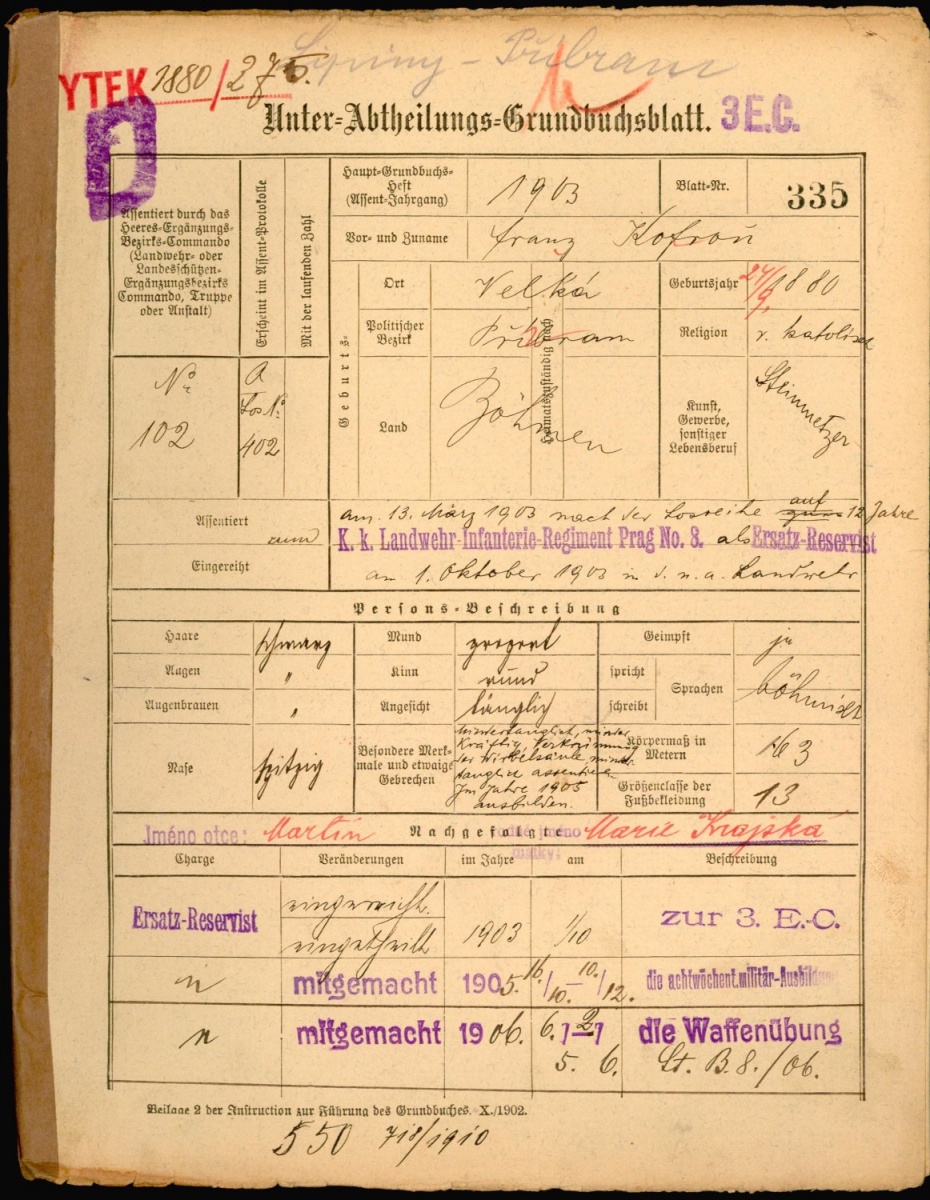 YTEK 1880/275. Lipiny - Příbram
Unter-Abtheilungs-Grundbuchsblatt. 3 E.C.
Assentiert durch das
Heeres-Ergänzungs-
Bezirks-Commando
(Landwehr- oder
Landesschützen-
Ergänzungsbezirks
Commando, Truppe
oder Anstalt)
Erscheint im Assent-Protokolle
Mit der laufenden Zahl
Haupt-Grundbuchs-
Heft
(Assent-Jahrgang)
1903
Blatt-Nr.
335
Vor- und Zuname
Franz Kofroň
Geburts-
Ort
Velká
Heimatszuständig nach
Geburtsjahr
24/9. 1880
Politischer
Bezirk
Příbram
Religion
r. katolisch
Land
Böhmen
Kunst,
Gewerbe,
sonstiger
Lebensberuf
Steinmetzer
No.
102
A
Los No.
402
Assentiert
am 13. März 1903 nach der Losreihe auf 12 Jahre
zum
K. k. Landwehr-Infanterie-Regiment Prag No. 8. als Ersatz-Reservist
Eingereiht
am 1. Oktober 1903 in d. n. a. Landwehr
Persons-Beschreibung
Haare schwarz Mund proport Geimpft ja
Augen " Kinn rund spricht Sprachen böhmisch
Augenbrauen " Angesicht länglich schreibt
Nase spitzig
Besondere Merk-
male und etwaige
Gebrechen
mindertauglich, minder
kräftig, Verkrümmung
der Wirbelsäule, minder
tauglich assentiert
Im Jahre 1905
ausbilden.
Körpermaß in
Metern
163
Größenclasse der
Fußbekleidung
13
Jméno otce: Martin Nachgefolgte rodné jméno Marie Krajská
matky:
Charge Veränderungen im Jahre am Beschreibung
Ersatz-Reservist eingereicht. eingetheilt 1903 1/10 zur 3. E.-C.
" mitgemacht 1905. 16/10. - 10./12. die achtwöchent. militär-Ausbildung
" mitgemacht 1906. 6. 5. 6. die Waffenübung
St. B. 8./06.
Beilage 2 der Instruction zur Führung des Grundbuches. X./1902.
550 718/1910